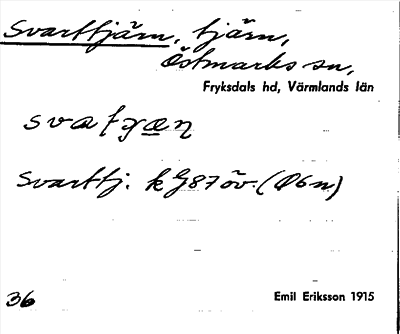 Svarttjärn, tjärn,
Östmarks sn,
Fryksdals hd, Värmlands län
Svarttj. k G87öv. (Ö6n)
36
Emil Eriksson 1915